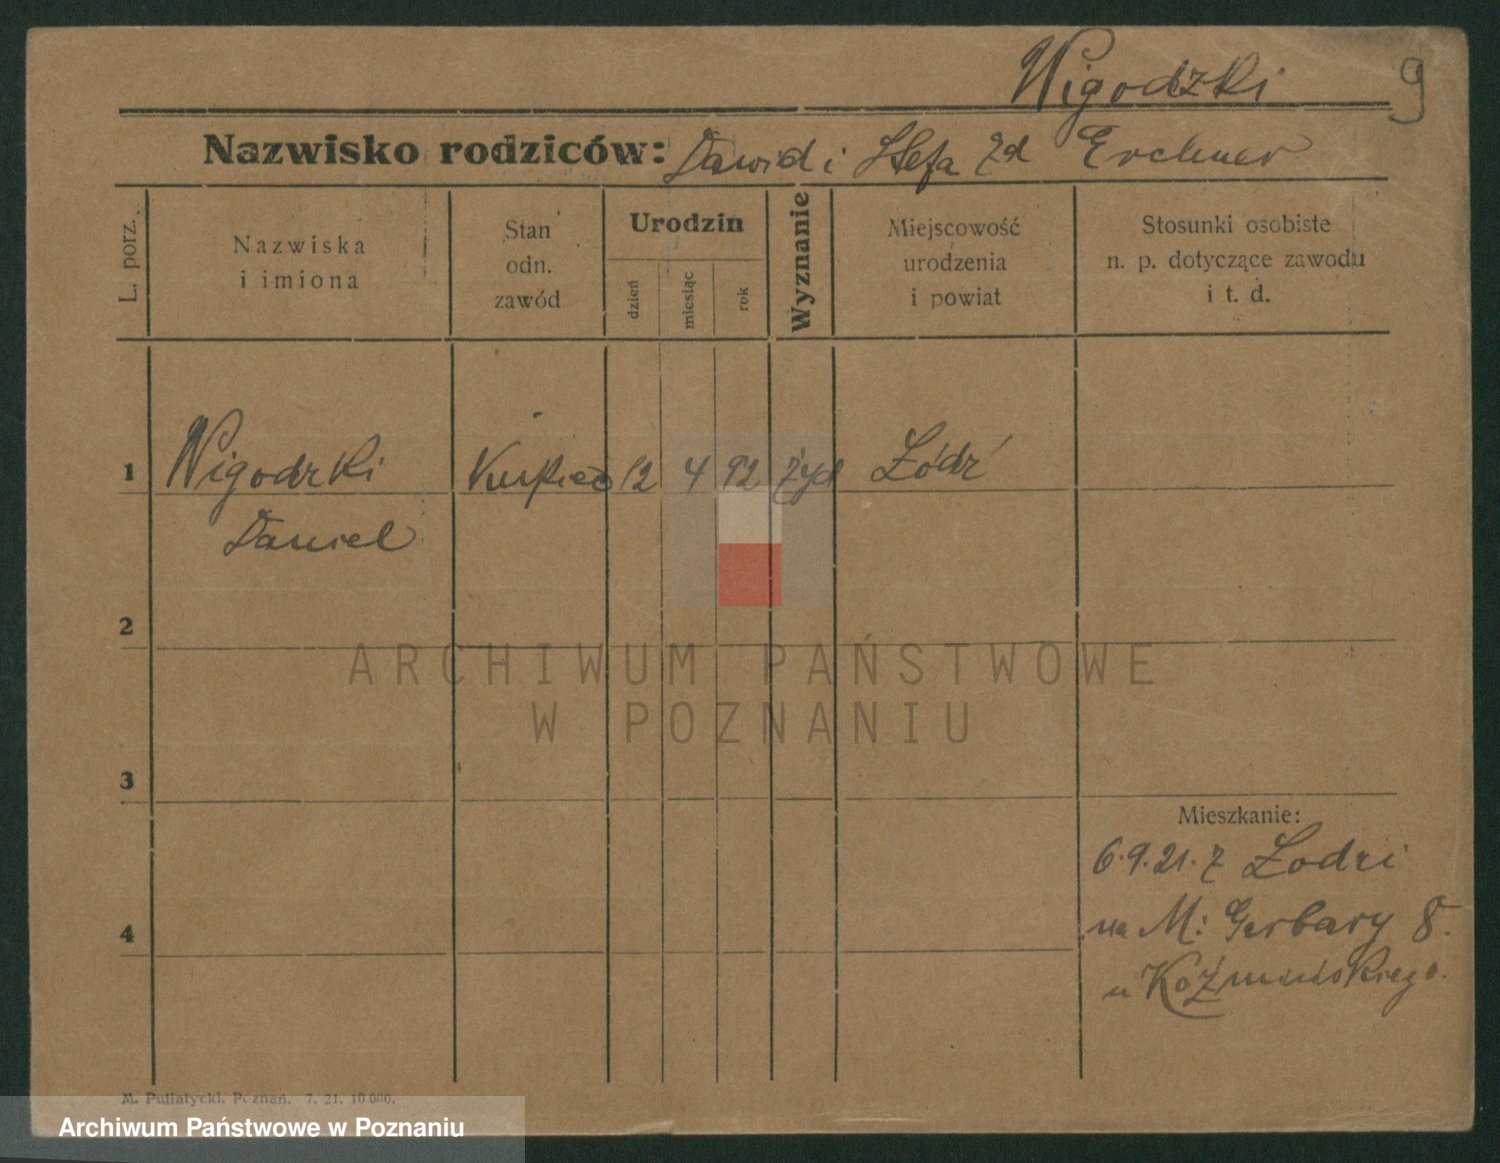 Wigodzki 9
Nazwisko rodziców: Dawid i Stefa zd Erchner
L. porz.
Nazwiska
i imiona
Stan
odn.
zawód
Urodzin
dzień
miesiąc
rok
Wyznanie
Miejscowość
urodzenia
i powiat
Stosunki osobiste
n. p. dotyczące zawodu
i t. d.
1 Wigodzki Kupiec 12 4 92 żyd Łódź
Daniel
2
3
4
Mieszkanie:
6.9.21. z Łodzi
na M: Garbary 8.
u Koźmińskiego.
ARCHIWUM PAŃSTWOWE
W POZNANIU
M. Putiatycki. Poznań. 7. 21. 10 000.
Archiwum Państwowe w Poznaniu